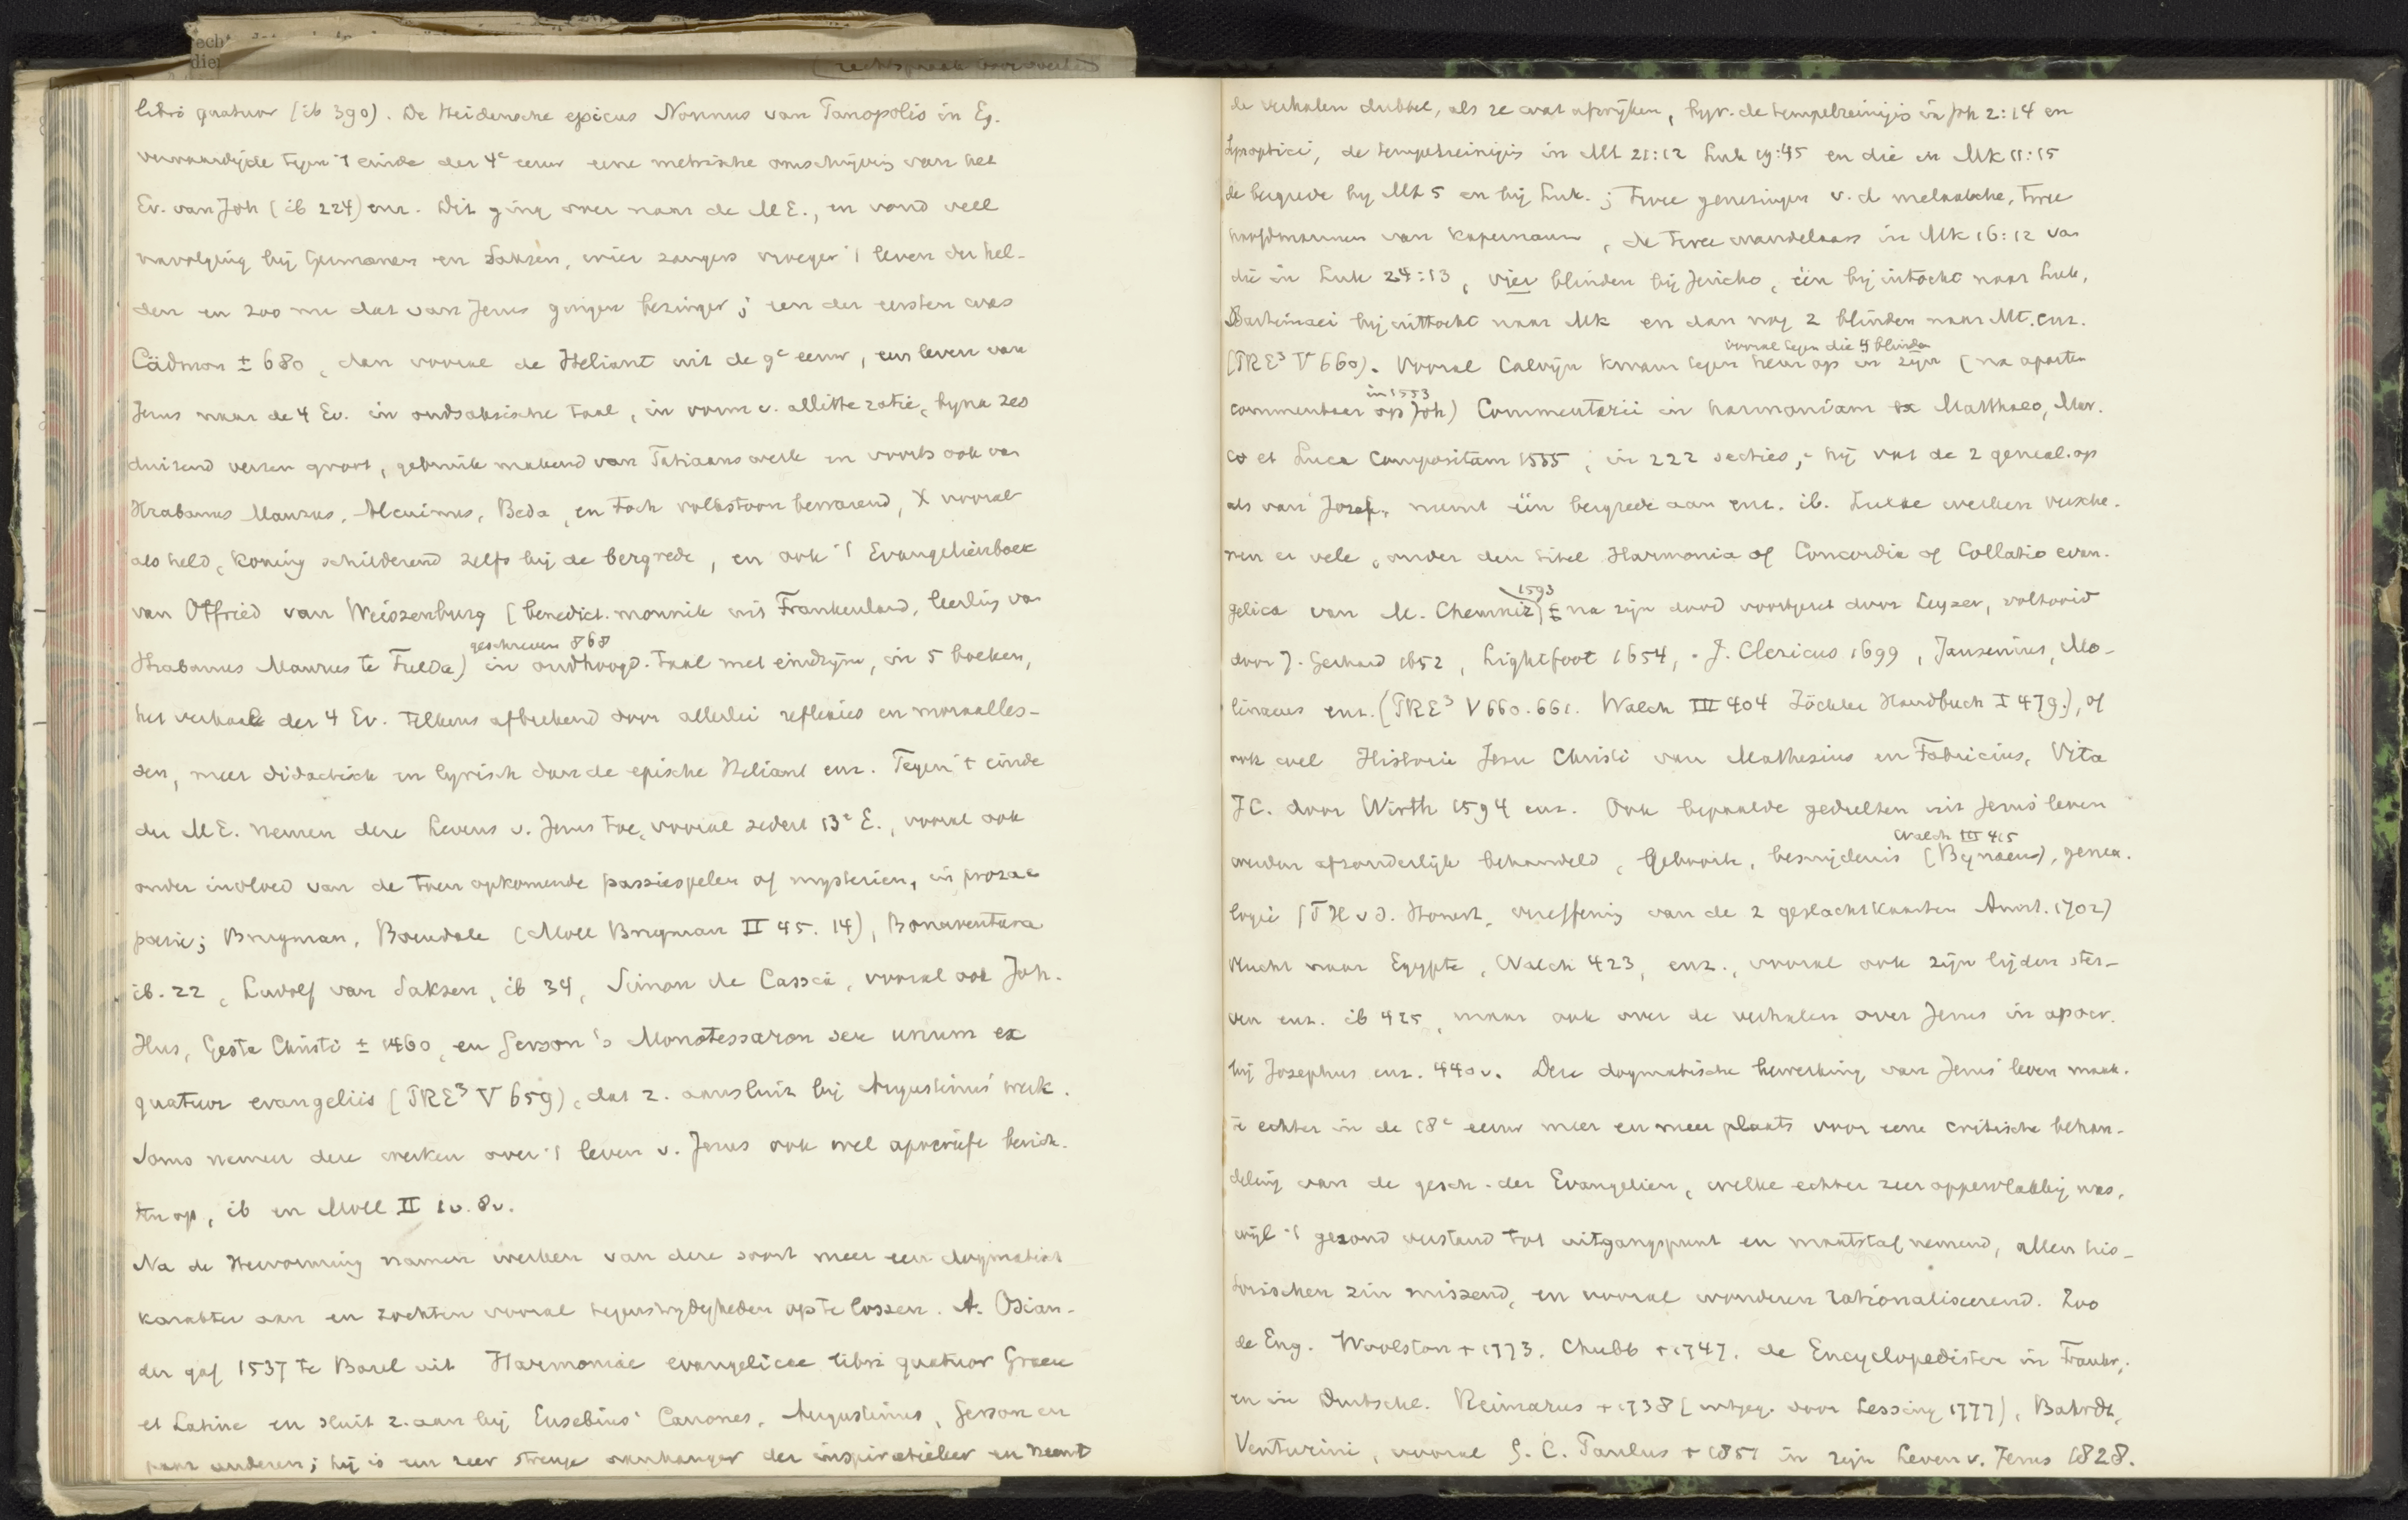 libri quatuor (ib 390). De Heidensche epicus Nonnus van Panopolis in Eg.
vervaardigde tegen 't einde der 4e eeuw eene metrische omschrijving van het
Ev. van Joh (ib 224) enz. Dit ging over naar de ME., en vond veel
navolging bij Germanen en Saksen, wier zangers vroeger 't leven der hel-
den en zoo nu dat van Jezus gingen bezingen; een der eersten was
Cädmon ± 680, dan vooral de Heliant uit de 9e eeuw, een leven van
Jezus naar de 4 Ev. in oudsaksische taal, in vorm v. allitteratie, bijna zes
duizend verzen groot, gebruik makend van Tatiaans werk en voorts ook van
Hrabanus Maurus, Alcuinus, Beda, en toch volkstoon bewarend, X vooral
als held, koning schilderend zelfs bij de bergrede, en ook 't Evangelienboek
van Otfried van Weiszenburg (benedict. monnik uit Frankenland, leerling van
geschreven 868
Hrabanus Maurus te Fulda) in oudhoogd. taal met eindrijm, in 5 boeken,
het verhaal der 4 Ev. telkens afbrekend door allerlei reflexies en moraalles-
sen, meer didactisch en lyrisch dan de epische Heliant enz. Tegen 't einde
der ME. nemen deze Levens v. Jezus toe, vooral sedert 13e E., vooral ook
onder invloed van de toen opkomende passiespelen of mysterien, in proza en
poezie; Brugman, Boendale (Moll Brugman II 45. 14), Bonaventura
ib. 22, Ludolf van Saksen, ib 34, Simon de Cassia, vooral ook Joh.
Hus, Gesta Christi ± 1460, en Gerson's Monotessaron seu unum ex
quatuor evangeliis (PRE3 V 659), dat z. aansluit bij Augustinus' werk.
Soms nemen deze werken over 't leven v. Jezus ook wel apocriefe berich-
ten op, ib en Moll II 1v. 8v.
Na de Hervorming namen werken van deze soort meer een dogmatisch
karakter aan en zochten vooral tegenstrijdigheden op te lossen. A. Osian-
der gaf 1537 te Basel uit Harmoniae evangelicae libri quatuor Graece
et Latine en sluit z. aan bij Eusebius' Canones, Augustinus, Gerson en
paar anderen; hij is een zeer streng aanhanger der inspiratieleer en neemt
de verhalen dubbel, als ze wat afwijken, bijv. de tempelreinigis in Joh 2:14 en
Synoptici, de tempelreinigis in Mt 21:12 Luk 19:45 en die in Mk 11:15
de bergrede bij Mt 5 en bij Luk.; twee genezingen v. d melaatsche, twee
hoofdmannen van Kapernaum, de twee wandelaars in Mk 16:12 van
die in Luk 24:13, vier blinden bij Jericho, één bij intocht naar Luk,
Bartimaei bij uittocht naar Mk en dan nog 2 blinden naar Mt. enz.
vooral tegen die 4 blinden
(PRE3 V 660). Vooral Calvijn kwam tegen hem op in zijn (na aparten
in 1553
commentaar op Joh) Commentarii in harmoniam ex Matthaeo, Mar-
co et Luca compositam 1555, in 222 secties; hij vat de 2 geneal. op
als van Jozef, neemt één bergrede aan enz. ib. Zulke werken versche-
nen er vele, onder den titel Harmonia of Concordia of Collatio evan-
1593
gelica van M. Chemniz) & na zijn dood voortgezet door Leyser, voltooid
door J. Gerhard 1652, Lightfoot 1654, J. Clericus 1699, Jansenius, Mo-
linaeus enz. (PRE3 V 660. 661. Walch III 404 Zöckler Handbuch I 479.), of
ook wel Historie Jesu Christi van Mathesius en Fabricius, Vita
JC. door Wirth 1594 enz. Ook bepaalde gedeelten uit Jezus' leven
Walch III 415
werden afzonderlijk behandeld, geboorte, besnijdenis (Bynaeus), genea-
logie (T H v d. Honert, vereffening van de 2 geslachtkaarten Amst. 1702)
vlucht naar Egypte, Walch 423, enz., vooral ook zijn lijden ster-
ven enz. ib 425, maar ook over de verhalen over Jezus in apocr.
bij Josephus enz. 440v. Deze dogmatische bewerking van Jezus' leven maak-
te echter in de 18e eeuw meer en meer plaats voor eene critische behan-
deling van de gesch. der Evangelien, welke echter zeer oppervlakkig was,
wijl 't gezond verstand tot uitgangspunt en maatstaf nemend, allen his-
torischen zin missend, en vooral wonderen rationaliseerend. Zoo
de Eng. Woolston + 1773, Chubb + 1747, de Encyclopedisten in Frankr.,
en in Duitschl. Reimarus + 1738 (uitgeg. door Lessing 1777), Bahrdt,
Venturini, vooral G. C. Paulus + 1851 in zijn Leven v. Jezus 1828.